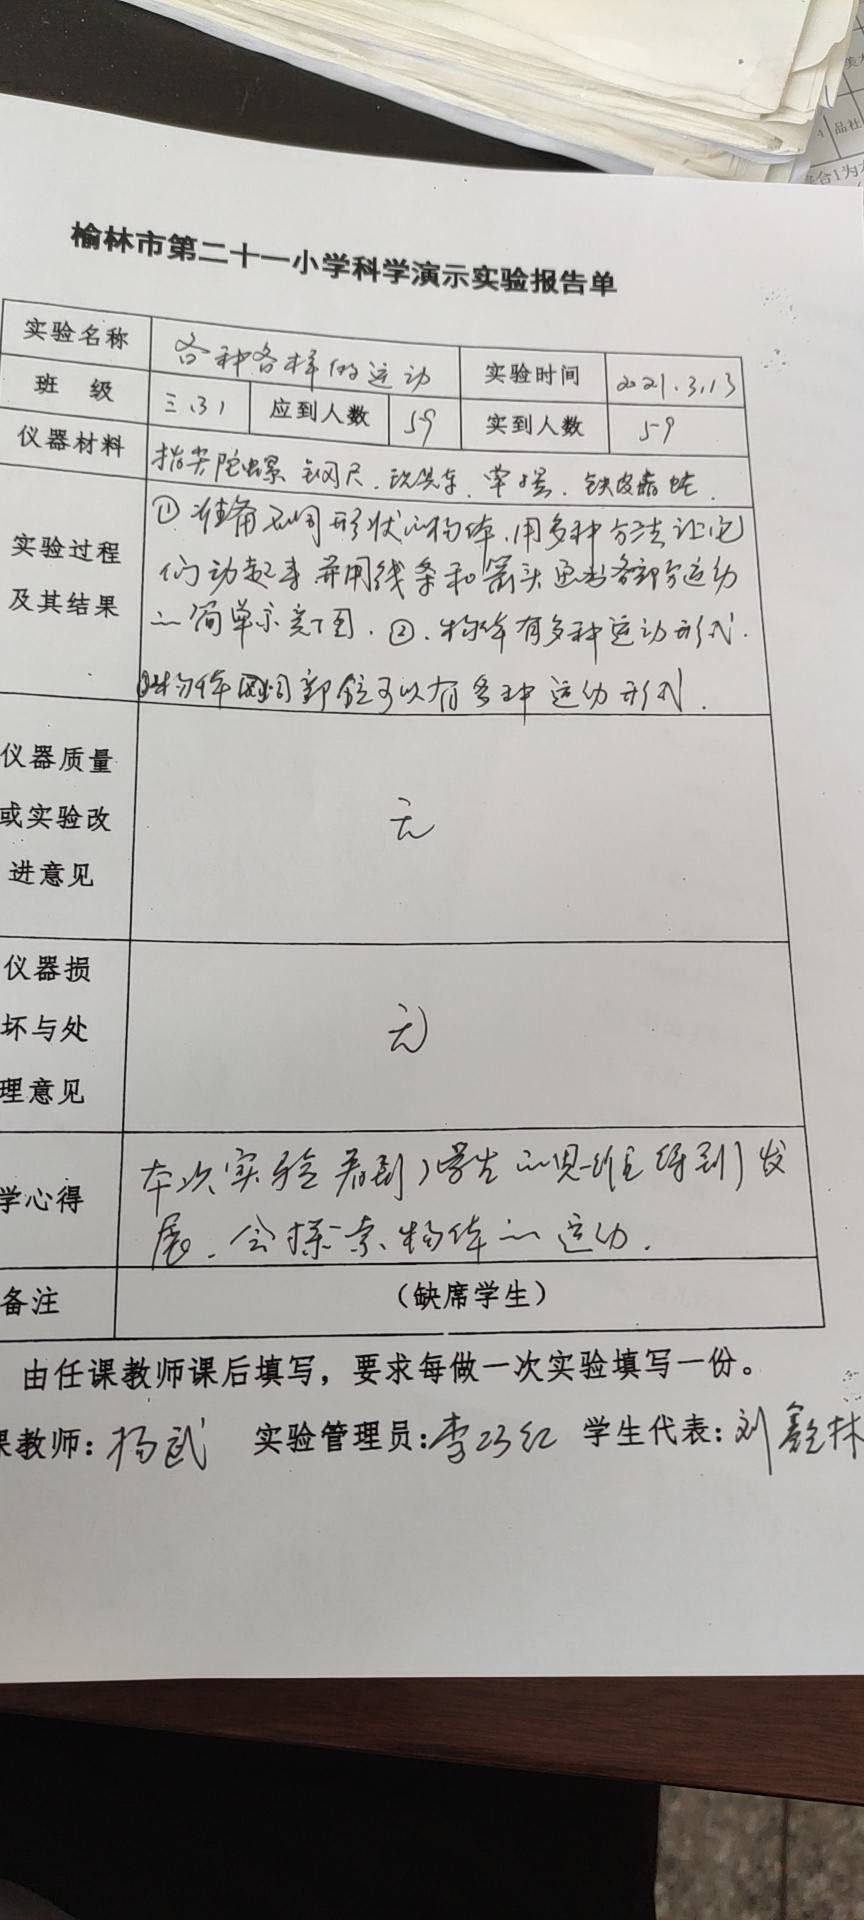 榆林市第二十一小学科学演示实验报告单
实验名称 各种各样的运动 实验时间 2021.3.13
班 级 三(3) 应到人数 59 实到人数 59
仪器材料 指尖陀螺 钢尺、玩具车、铁皮青蛙.
实验过程
及其结果
①准备不同形状的物体,用多种方法让它
们动起来并用线条和箭头画出各部分运动
的简单示意图.②.物体有多种运动形式.
③物体不同部位可以有多种运动形式.
仪器质量
或实验改
进意见
无
仪器损
坏与处
理意见
无
学心得
本次实验看到了学生的思维得到了发
展.会探索物体的运动.
备注 (缺席学生)
由任课教师课后填写,要求每做一次实验填写一份。
课教师:杨武 实验管理员:李巧红 学生代表:刘林
品社
合1为